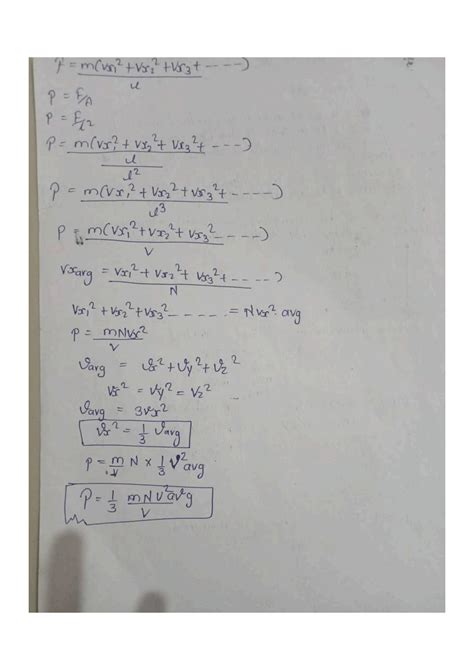 F = m(vx₁² + vx₂² + vx₃ + ----)
l
P = F/A
P = F/l²
P = m(vx₁² + vx₂² + vx₃² + ---)
l
l²
P = m(vx₁² + vx₂² + vx₃² + -----)
l³
P = m(vx₁² + vx₂² + vx₃² -----)
V
vx avg = vx₁² + vx₂² + vx₃² + -----)
N
vx₁² + vx₂² + vx₃² ------ = Nvx² avg
P = mNvx²
V
vavg = vx² + vy² + vz²
vx² = vy² = vz²
vavg = 3vx²
vx² = 1/3 vavg
P = m/V N × 1/3 v² avg
P = 1/3 mNv²av²g
V